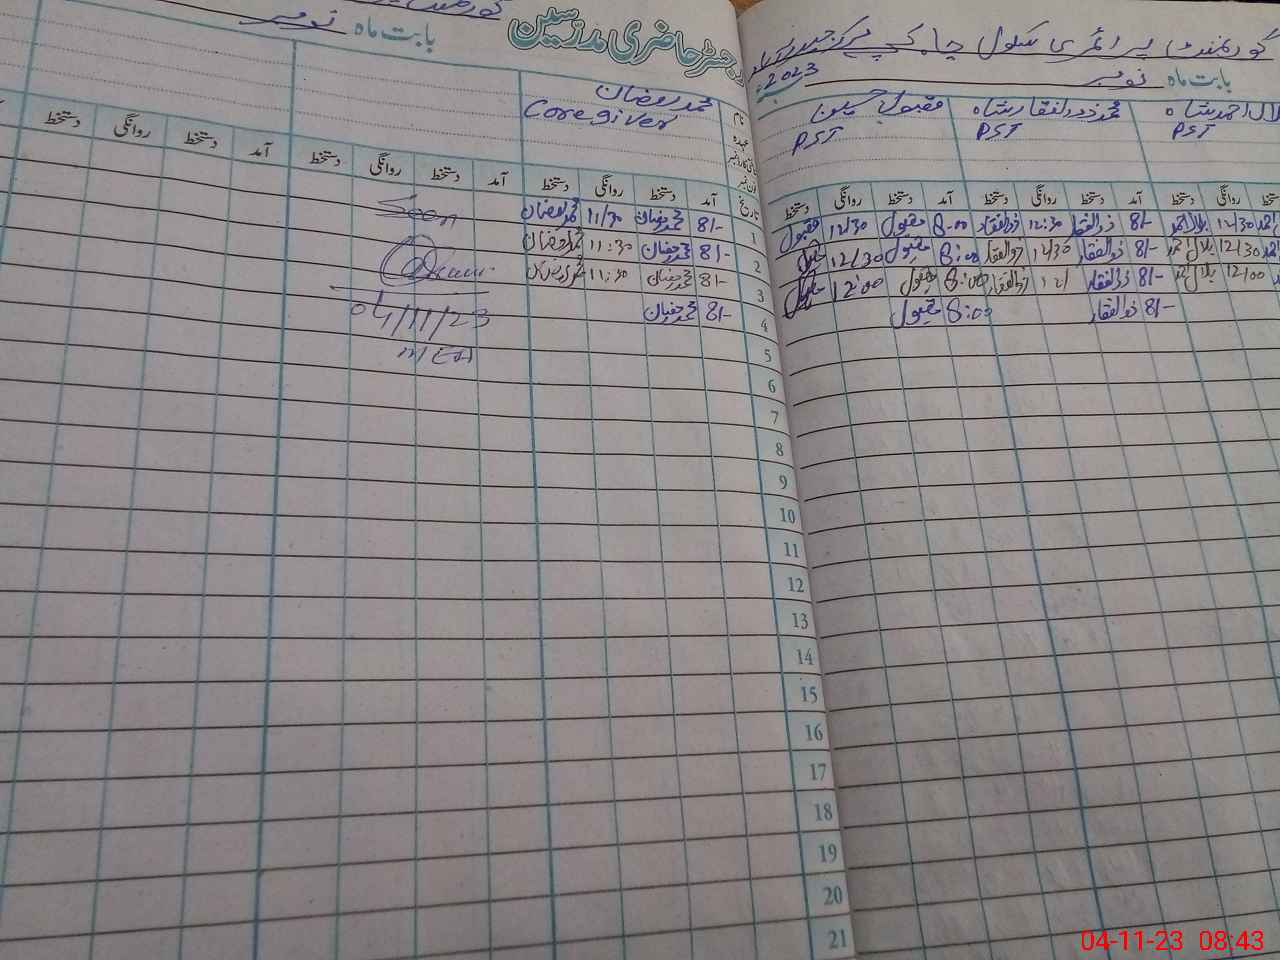 گورنمنٹ پرائمری سکول چاہ
بابت ماہ نومبر 2023
مقبول حسین
PST
محمد ذوالفقار شاہ
PST
بلال احمد شاہ
PST
دستخط روانگی دستخط آمد دستخط روانگی دستخط آمد دستخط روانگی
مقبول 12/30 مقبول 8:00 ذوالفقار 12:30 ذوالفقار 8/- بلال احمد 12/30
12/30 مقبول 8:00 ذوالفقار 12/30 ذوالفقار 8/- بلال احمد 12/30
12:00 مقبول 8:00 ذوالفقار 12/ ذوالفقار 8/- 12/00
مقبول 8:00 ذوالفقار 8/-
رجسٹر حاضری مدرسین
بابت ماہ نومبر
محمد رمضان
Caregiver
نام
عہدہ
تاریخ
آمد دستخط روانگی دستخط آمد دستخط روانگی دستخط آمد دستخط روانگی دستخط
1 8/- محمد رمضان 11/30 محمد رمضان
2 8/- محمد رمضان 11:30 محمد رمضان
3 8/- محمد رمضان 11:30 محمد رمضان
4 8/- محمد رمضان
Seen
04/11/23
MEA
5
6
7
8
9
10
11
12
13
14
15
16
17
18
19
20
21
04-11-23 08:43